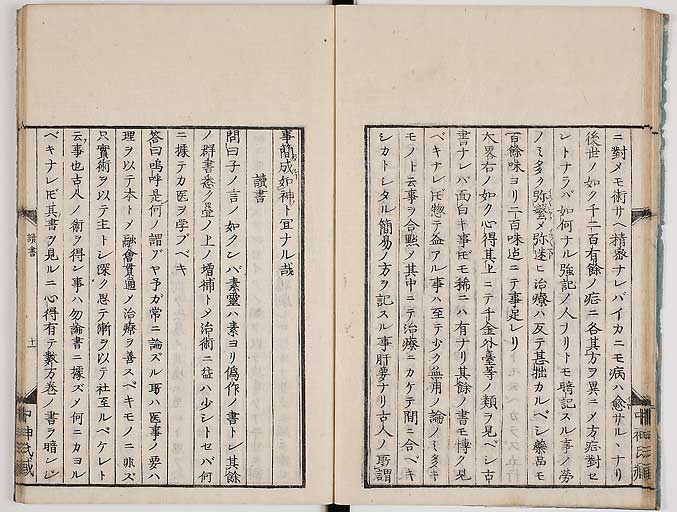 ニ對メモ術サヘ精密ナレバイカニモ病ハ愈サルハナリ
後世ノ如ク千二百有餘ノ症ニ各其方ヲ異ニメ方症對セ
シトナラバ如何ナル強記ノ人ナリトモ暗記スル事ノ勞
ノミ多ク弥繁メ弥迷ヒ治療ハ反テ甚拙カルベシ藥品モ
百餘味ヨリ二百味迠ニテ事足レリ
大畧右ノ如ク心得其上ニテ千金外臺等ノ類ヲ見ベシ古
書ナレバ面白キ事𪜈モ稀ニハ有ナリ其餘ノ書モ博ク見
ベキナレ𪜈惣テ益アル事ハ至テ少ク無用ノ論ノミ多キ
モノト云事ヲ合㸃メ其中ニテ治療ニカケテ間ニ合ベキ
シカトシタル簡易ノ方ヲ記スル事肝要ナリ古人ノ所謂
事簡成如神ト冝ナル哉
讀書
問曰子ノ言ノ如クンバ素靈ハ素ヨリ偽作ノ書トシ其餘
ノ群書悉ク疊ノ上ノ増補トメ治術ニ益ハ少シトセバ何
ニ據テカ医ヲ学ブベキ
答曰嗚呼是何ノ謂ゾヤ予ガ常ニ論ズル所ハ医事ノ要ハ
理ヲ以テ本トメ融會貫通メ治療ヲ善スベキモノニ非ズ
只實術ヲ以テ主トシ深ク思テ漸ヲ以テ社至ルベケレト
云事也古人ノ術ヲ得シ事ハ勿論書ニ據ズメ何ニカヨル
ベキナレ𪜈其書ヲ見ルニ心得有テ數万巻ノ書ヲ暗ンジ
讀書
十一
中神氏藏